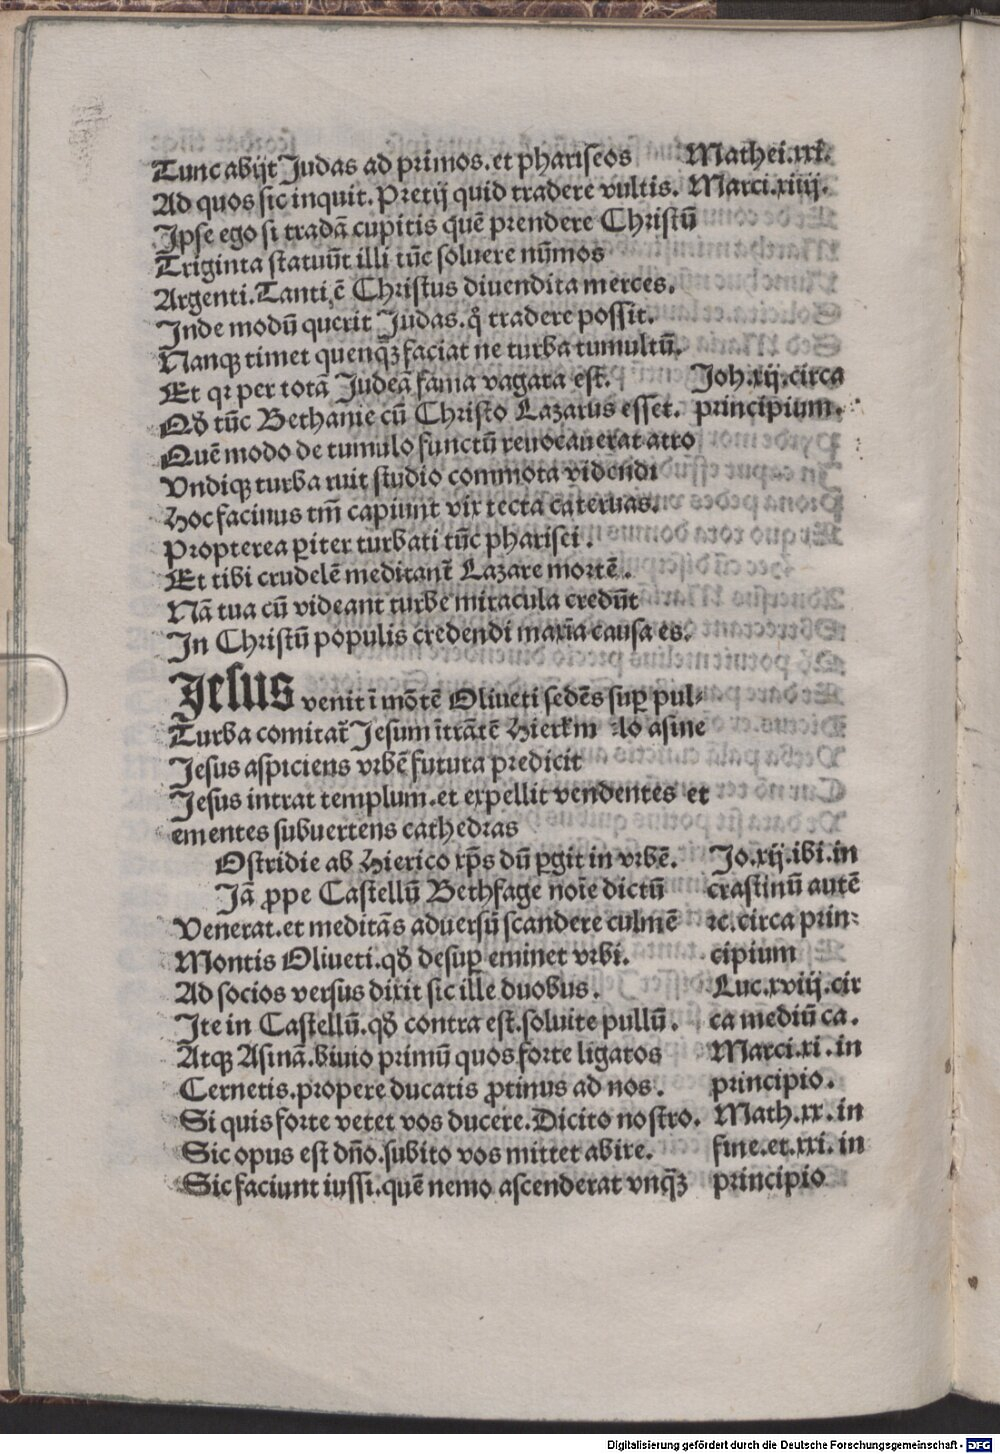 Tunc abijt Judas ad primos. et phariseos Mathei. xxi.
Ad quos sic inquit. Pretij quid tradere vultis. Marci. xiiij.
Ipse ego si tradā cupitis quē prendere Christū
Triginta statuūt illi tūc soluere nūmos
Argenti. Tanti ē Christus diuendita merces.
Inde modū querit Judas. q̊ tradere possit.
Nanqꝫ timet quenqꝫ faciat ne turba tumultū.
Et qꝛ per totā Judeā fama vagata est. Joh. xij. circa
Qď tūc Bethanie cū Christo Lazarus esset. principium.
Quē modo de tumulo functū reuocauerat atro
Vndiqꝫ turba ruit studio commota videndi
Hoc facinus tm̄ capiunt vix tecta cateruas.
Propterea ꝑiter turbati tūc pharisei.
Et tibi crudelē meditant̄ Lazare mortē.
Nā tua cū videant turbe miracula credūt
In Christū populis credendi maxīa causa es.
Jesus venit ī mōtē Oliueti sedēs suꝑ pul-
Turba comitat̄ Jesum ītrātē Hierl̄m lo asine
Jesus aspiciens vrbē futura predicit
Jesus intrat templum. et expellit vendentes et
ementes subuertens cathedras
Ostridie ab Hierico xp̄s dū ꝑgit in vrbē. Jo. xij. ibi. in
Jā ꝓpe Castellū Bethfage noīe dictū crastinū autē
Venerat. et meditās aduersū scandere culmē ꝛc. circa prin-
Montis Oliueti. qď desuꝑ eminet vrbi. cipium
Ad socios versus dixit sic ille duobus. Luc. xviij. cir
Ite in Castellū. qď contra est. soluite pullū. ca mediū ca.
Atqꝫ Asinā. biuio primū quos forte ligatos Marci. xi. in
Cernetis. propere ducatis ꝓtinus ad nos. principio.
Si quis forte vetet vos ducere. Dicito nostro. Math. xx. in
Sic opus est dn̄o. subito vos mittet abire. fine. et. xxi. in
Sic faciunt iussi. quē nemo ascenderat vnqꝫ principio
Digitalisierung gefördert durch die Deutsche Forschungsgemeinschaft - DFG